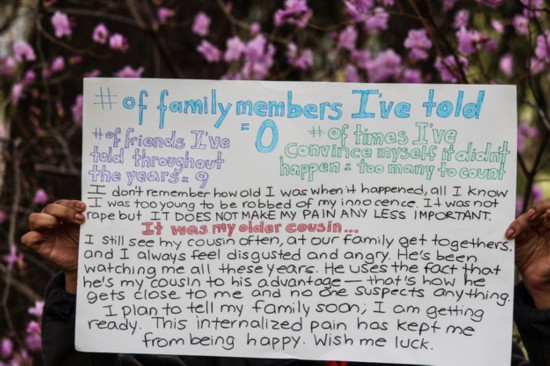 # of family members I've told
= 0
# of friends I've
told throughout
the years = 9
# of times I've
convince myself it didn't
happen = too many to count
I don't remember how old I was when it happened, all I know
I was too young to be robbed of my innocence. It was not
rape but IT DOES NOT MAKE MY PAIN ANY LESS IMPORTANT.
It was my older cousin...
I still see my cousin often, at our family get togethers,
and I always feel disgusted and angry. He's been
watching me all these years. He uses the fact that
he's my cousin to his advantage — that's how he
gets close to me and no one suspects anything.
I plan to tell my family soon; I am getting
ready. This internalized pain has kept me
from being happy. Wish me luck.